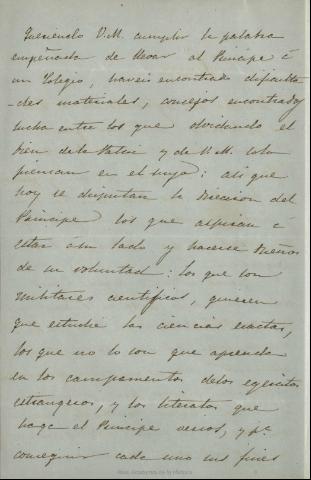 Queriendo V.M. cumplir la palabra
empeñada de llevar al Principe á
un Colegio, haveis encontrado dificulta
-des materiales, consejos encontrados,
lucha entre los que olvidando el
bien de la Patria y de V.M. solo
piensan en el suyo: asi que
hoy se disputan la direccion del
Principe los que aspiran á
estar á su lado y hacerse dueños
de su voluntad: los que son
militares cientificos, quieren
que estudie las ciencias exactas,
los que no lo son que aprenda
en los campamentos de los egercitos
estrangeros, y los literatos que
haga el Principe versos, y pa.
conseguir cada uno sus fines
Real Academia de la Historia